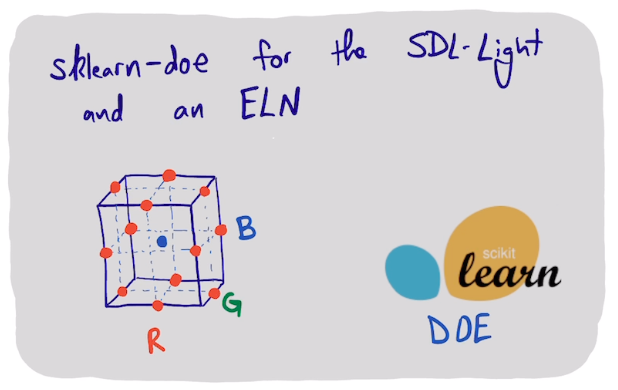 sklearn-doe for the SDL-Light
and an ELN
B
G
R
scikit
learn
DOE